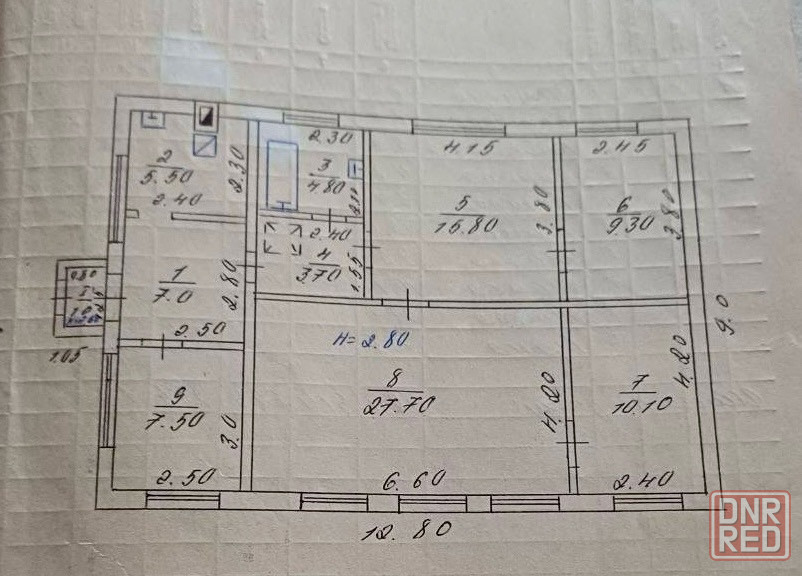 2
5.50
2.40
2.30
2.30
3
4.80
2.40
4
3.70
1.55
4.15
5
15.80
3.80
2.45
6
9.30
3.80
1
7.0
2.80
2.50
1.05
H=2.80
8
27.70
4.20
6.60
7
10.10
4.20
2.40
9.0
9
7.50
3.0
2.50
12.80
DNR
RED